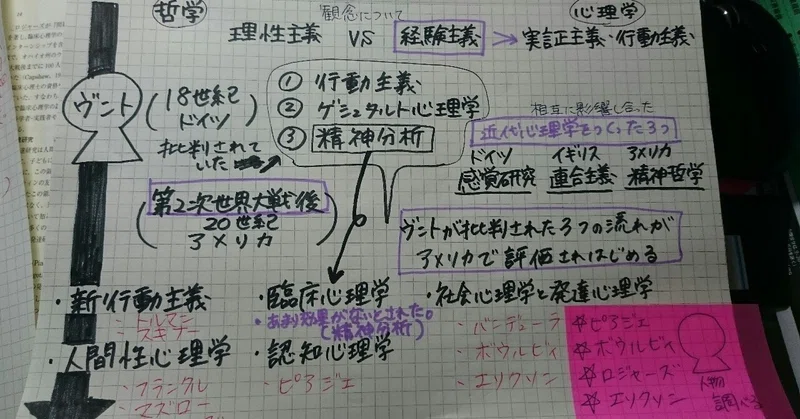 哲学
観念について
心理学
理性主義 VS 経験主義 → 実証主義・行動主義
ヴント
(18世紀
ドイツ
批判されて
いた)
① 行動主義
② ゲシュタルト心理学
③ 精神分析
相互に影響し合った
近代心理学をつくった3つ
ドイツ イギリス アメリカ
感覚研究 連合主義 精神哲学
第2次世界大戦後
(20世紀
アメリカ)
ヴントが批判された3つの流れが
アメリカで評価されはじめる
・新行動主義
・トルマン
・スキナー
・人間性心理学
・フランクル
・マズロー
・臨床心理学
・あまり効果がないとされた。
(精神分析)
・認知心理学
・ピアジェ
・社会心理学と発達心理学
・バンデューラ
・ボウルビィ
・エリクソン
☆ピアジェ
☆ボウルビィ
☆ロジャーズ
☆エリクソン
人物
調べる